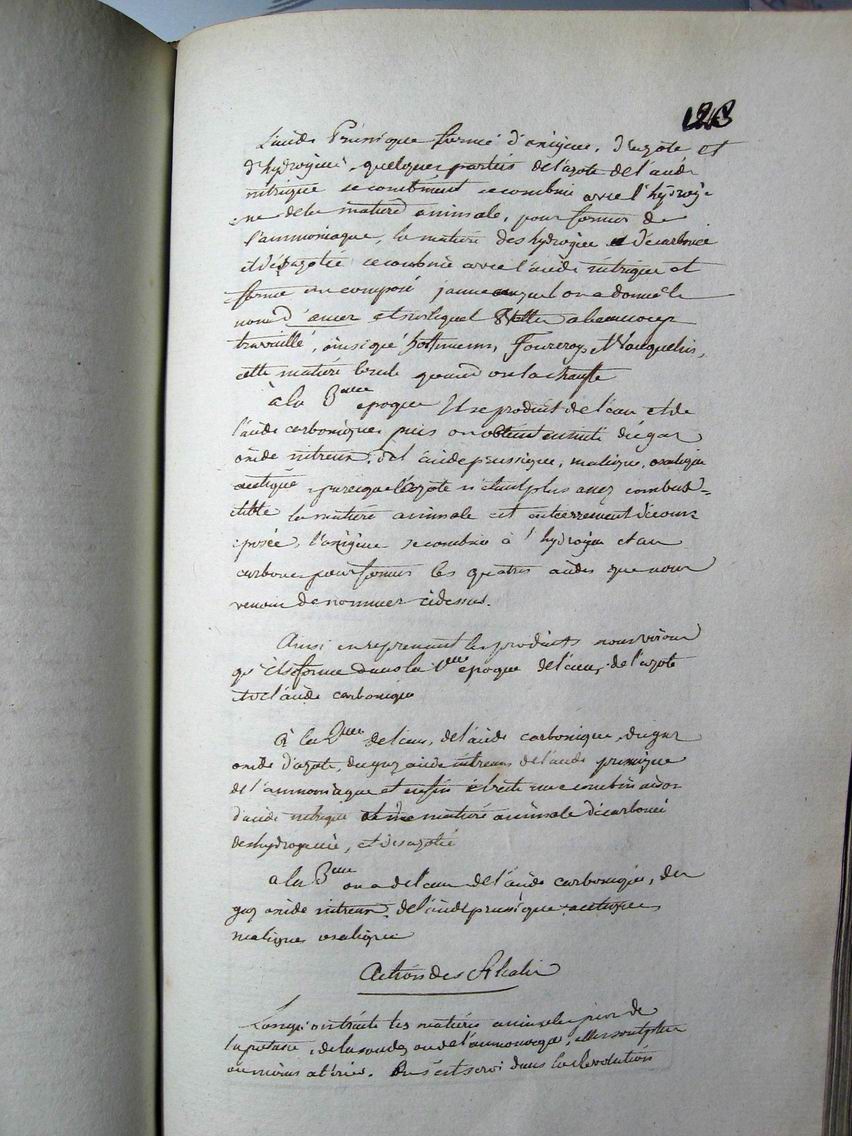 128
L'acide Prussique formé d'oxigène, d'azote et
d'hydrogène, quelques parties de l'azote de l'acide
nitrique se combinent se combine avec l'hydrogè
ne de la matière animale, pour former de
l'ammoniaque, la matière deshydrogénée décarbonée
et désazotée se combine avec l'acide nitrique et
forme un composé jaune auquel on a donné le
nom d'amer et sur lequel a beaucoup
travaillé, ainsi que hoffmann, Fourcroy et Vauquelin,
cette matière brule quand on la chauffe
à la 3eme epoque Il se produit de l'eau et de
l'acide carbonique, puis on obtient ensuite du gaz
oxide nitreux, del acide prussique, malique, oxalique
acetique, puisque l'azote n'étant plus assez combus=
tible la matière animale est entierrement décom
posée, l'oxigène se combine à l'hydrogène et au
carbone pour former les quatres acides que nous
venons de nommer cidessus.
Ainsi en reprenant les produits nous voyons
qu'il se forme dans la 1ere epoque de l'eau, de l'azote
et de l'acide carbonique
à la 2eme de l'eau, de l'acide carbonique, du gaz
oxide d'azote, du gaz acide nitreux de l'acide prussique
de l'ammoniaque et enfin une combinaison
d'acide nitrique et de matière animale décarbonée
deshydrogenée, et desazotée
a la 3eme on a de l'eau de l'acide carbonique, du
gaz oxide nitreux, de l'acide prussique acetique
malique oxalique
Action des Alkalis
Lorsqu'on traite les matières animales par de
la potasse, de la soude, ou de l'ammoniaque, elles sont plus
ou moins alterées. On s'est servi dans la revolution